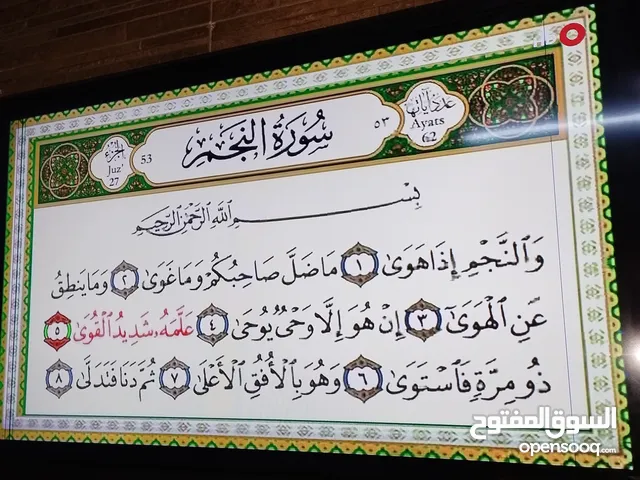 عدد آياتها
Ayats
62
٥٣
سُورَةُ النَّجْمِ
53
الجزء
Juz'
27
بِسْمِ اللَّهِ الرَّحْمَٰنِ الرَّحِيمِ
وَالنَّجْمِ إِذَا هَوَىٰ ١ مَا ضَلَّ صَاحِبُكُمْ وَمَا غَوَىٰ ٢ وَمَا يَنطِقُ
عَنِ الْهَوَىٰ ٣ إِنْ هُوَ إِلَّا وَحْيٌ يُوحَىٰ ٤ عَلَّمَهُ شَدِيدُ الْقُوَىٰ ٥
ذُو مِرَّةٍ فَاسْتَوَىٰ ٦ وَهُوَ بِالْأُفُقِ الْأَعْلَىٰ ٧ ثُمَّ دَنَا فَتَدَلَّىٰ ٨
السوق المفتوح
opensooq.com